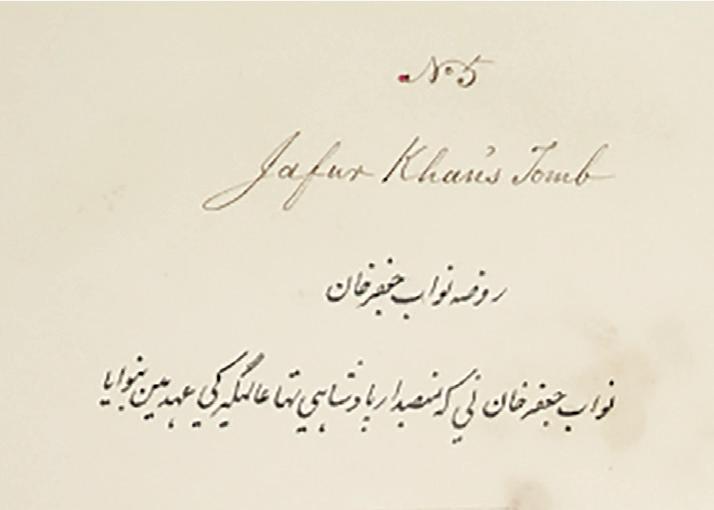 No 5
Jafur Khan's Tomb
روضه نواب جعفر خان
نواب جعفر خان ني که منصبدار پادشاهي تها عالمگير کي عهد مين بنوايا